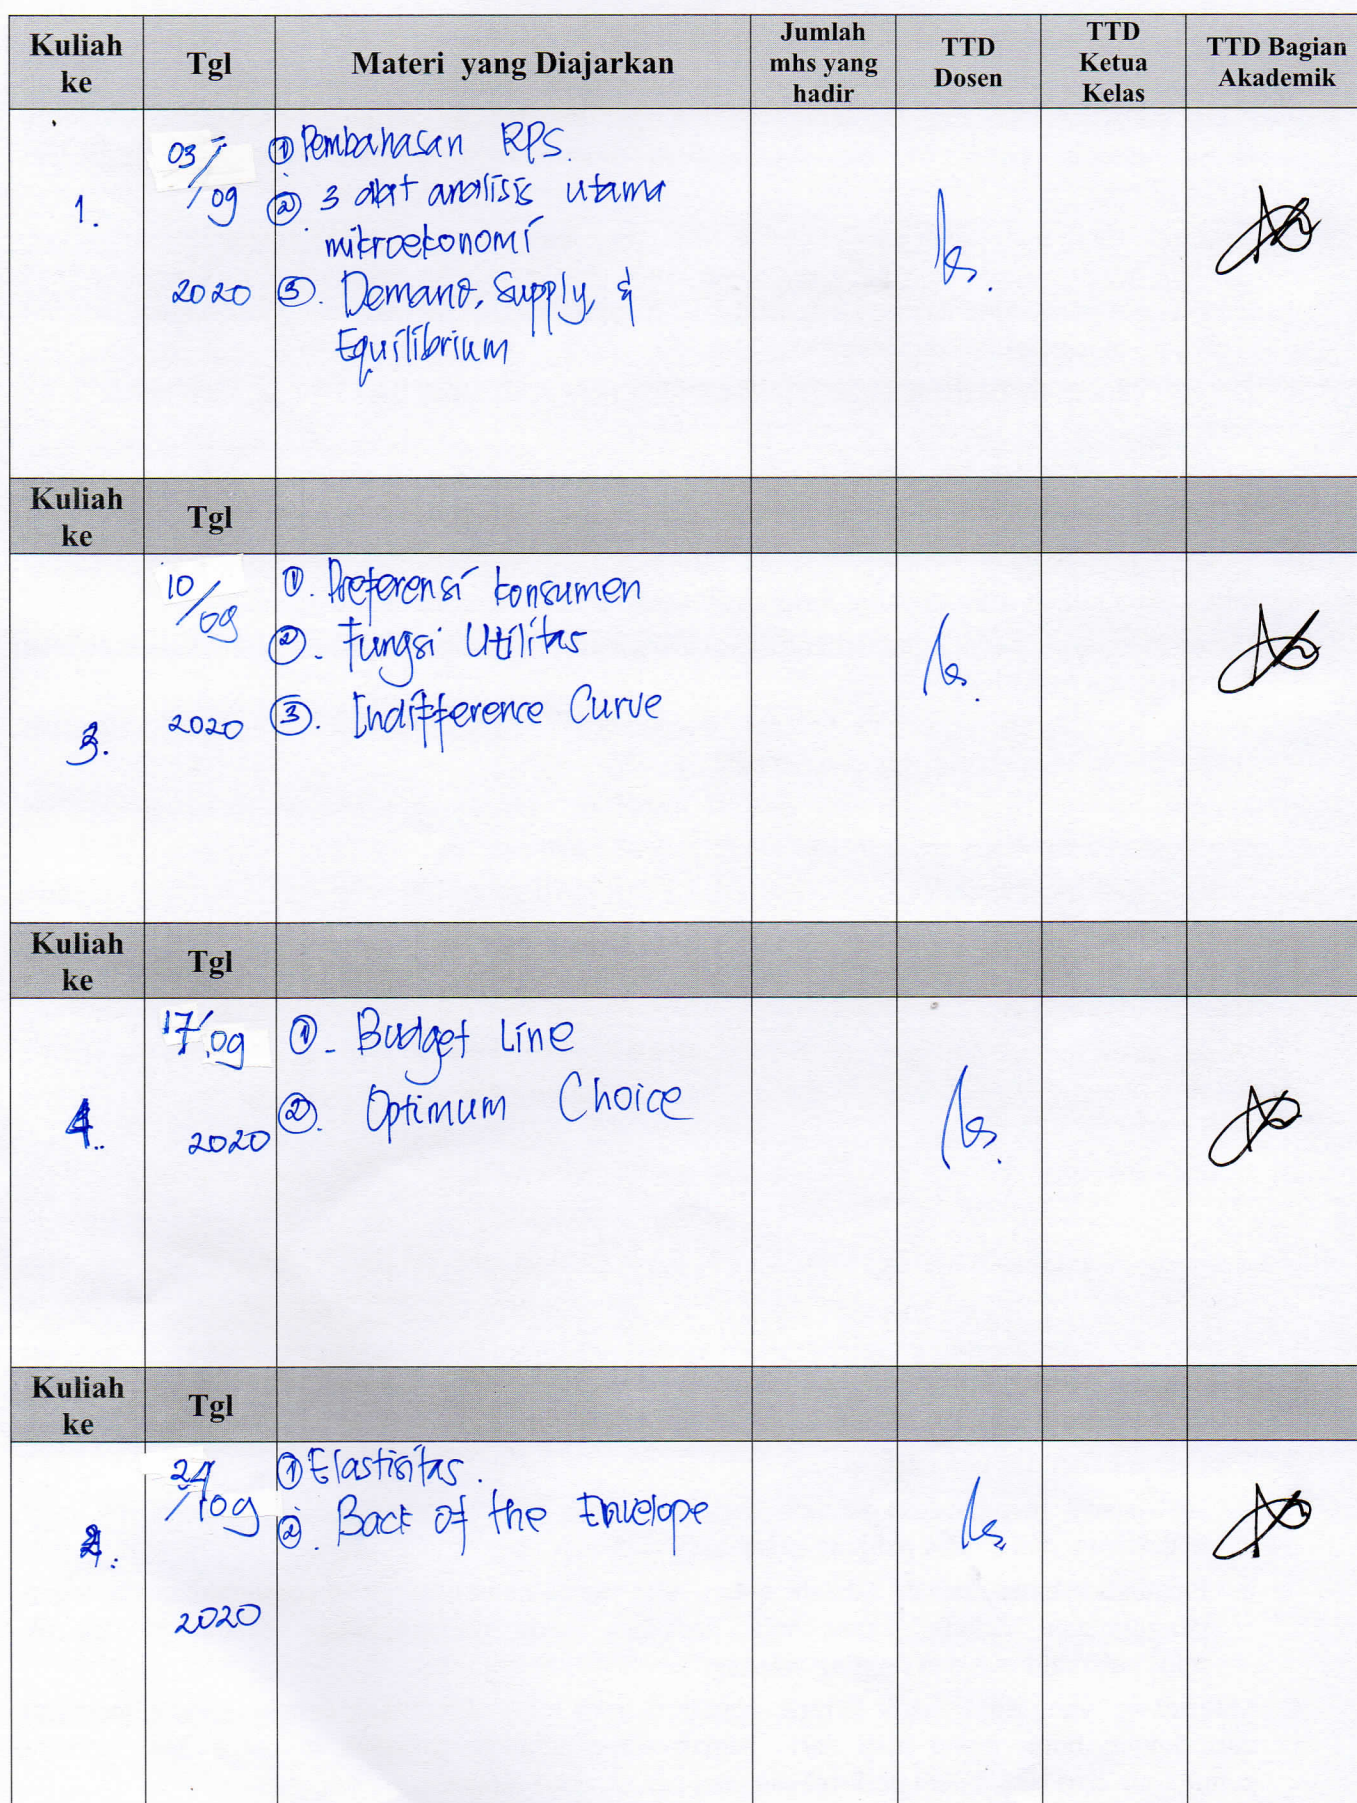 Kuliah ke Tgl Materi yang Diajarkan Jumlah mhs yang hadir TTD Dosen TTD Ketua Kelas TTD Bagian Akademik
03/ ① Pembahasan RPS.
/09 ② 3 alat analisis utama
1.
mikroekonomi
2020 ③. Demand, Supply, &
Equilibrium
Kuliah ke Tgl
10/09 ①. Preferensi konsumen
②. Fungsi Utilitas
2020 ③. Indifference Curve
3.
Kuliah ke Tgl
17/09 ①. Budget Line
4. 2020 ②. Optimum Choice
Kuliah ke Tgl
24/09 ① Elastisitas.
②. Back of the Envelope
2020